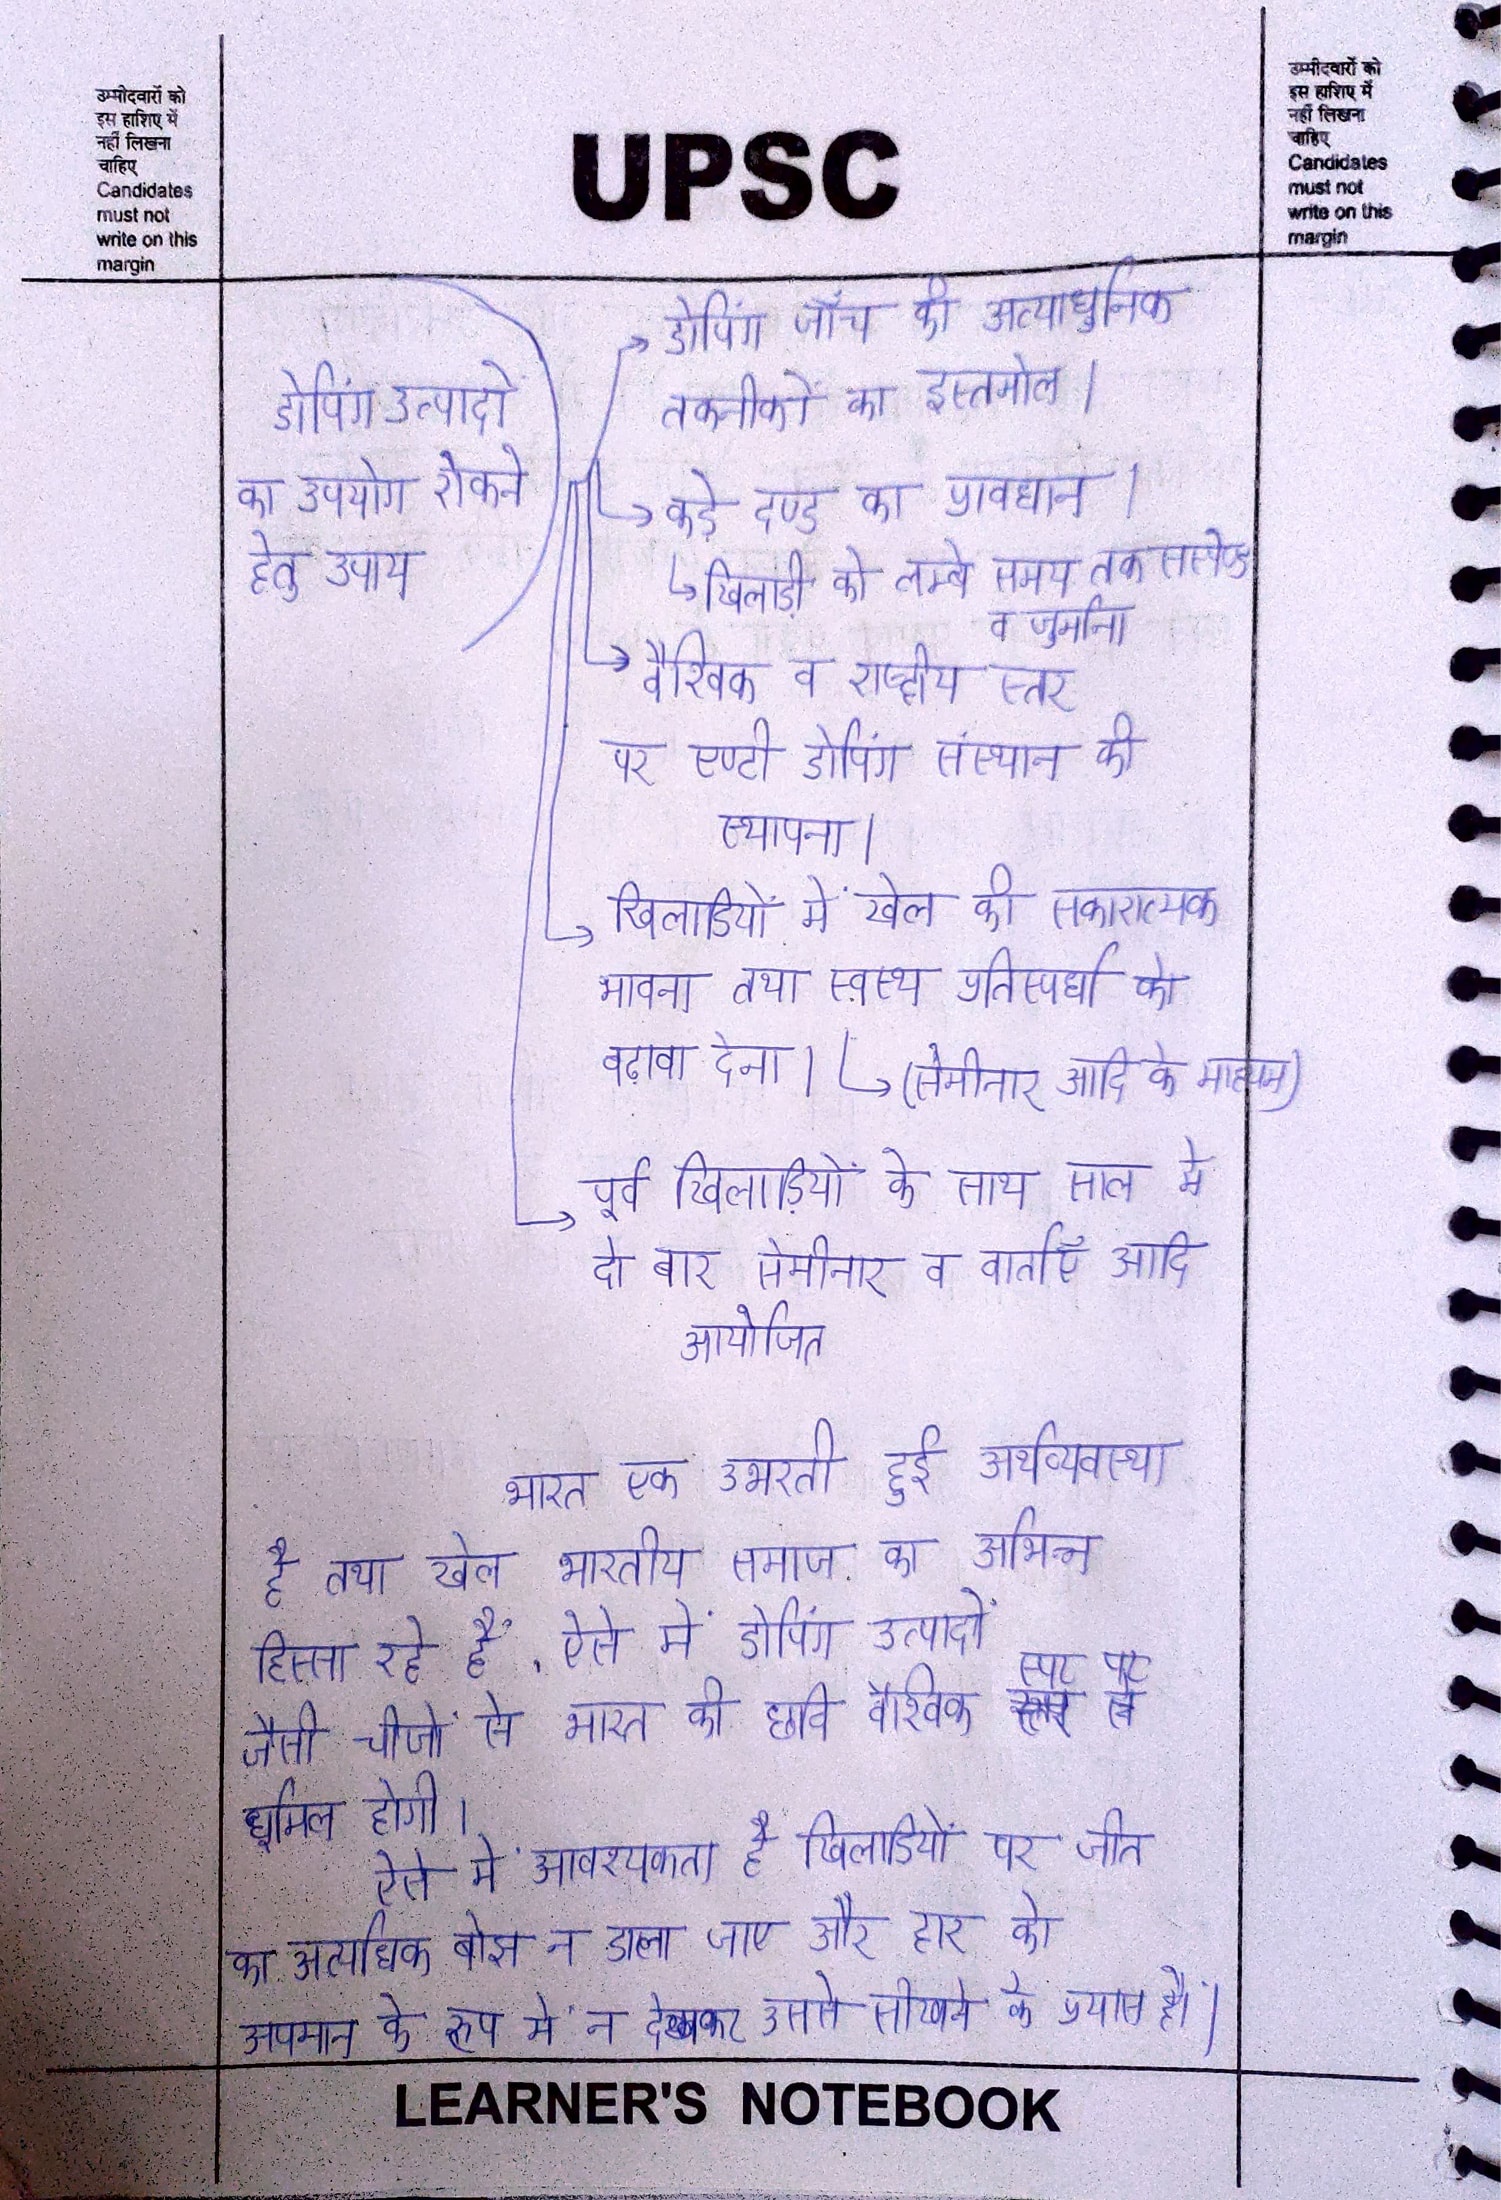 उम्मीदवारों को
इस हाशिए में
नहीं लिखना
चाहिए
Candidates
must not
write on this
margin
UPSC
उम्मीदवारों को
इस हाशिए में
नहीं लिखना
चाहिए
Candidates
must not
write on this
margin
डोपिंग उत्पादों
का उपयोग रोकने
हेतु उपाय
डोपिंग जाँच की अत्याधुनिक
तकनीकों का इस्तमोल।
कड़े दण्ड का प्रावधान।
खिलाड़ी को लम्बे समय तक सस्पेण्ड
व जुर्माना
वैश्विक व राष्ट्रीय स्तर
पर एण्टी डोपिंग संस्थान की
स्थापना।
खिलाडियों में खेल की सकारात्मक
भावना तथा स्वस्थ प्रतिस्पर्धा को
बढ़ावा देना। (सेमीनार आदि के माध्यम)
पूर्व खिलाड़ियों के साथ साल में
दो बार सेमीनार व वार्ताएँ आदि
आयोजित
भारत एक उभरती हुई अर्थव्यवस्था
है तथा खेल भारतीय समाज का अभिन्न
हिस्सा रहे हैं, ऐसे में डोपिंग उत्पादों
जैसी चीजों से भारत की छवि वैश्विक स्तर पर
धूमिल होगी।
ऐसे में आवश्यकता है खिलाडियों पर जीत
का अत्यधिक बोझ न डाला जाए और हार को
अपमान के रूप में न देखकर उससे सीखने के प्रयास हों।
LEARNER'S NOTEBOOK